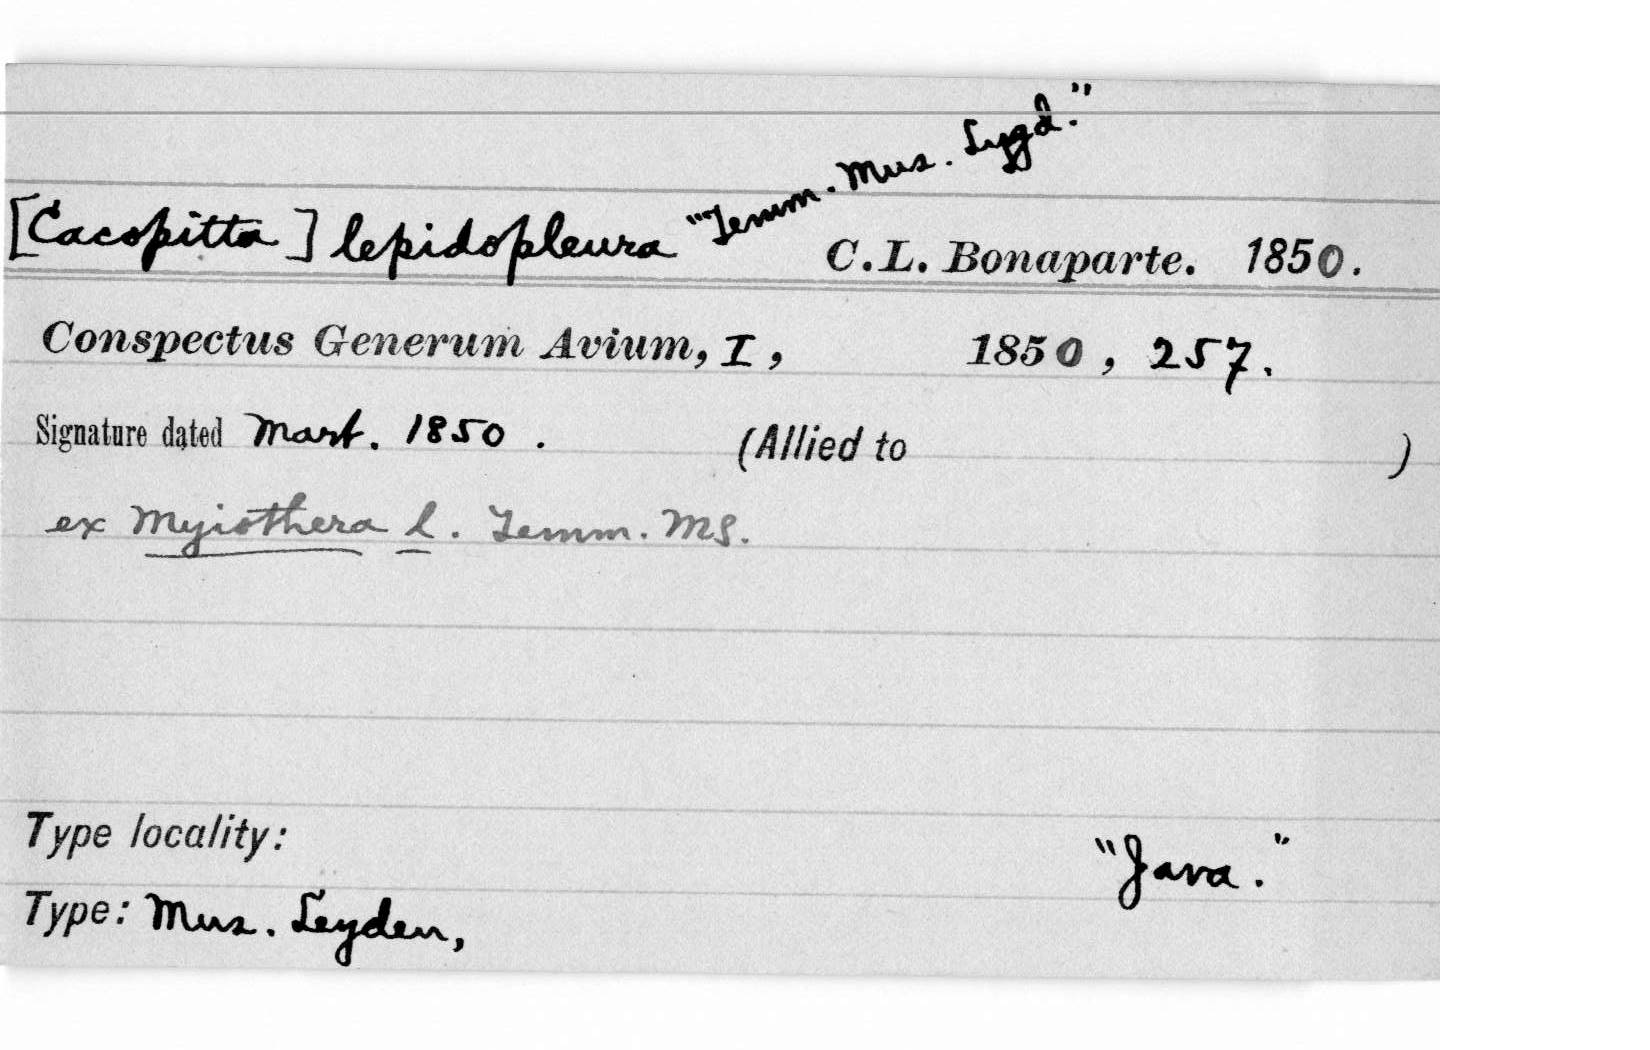 [Cacopitta] lepidopleura "Temm. Mus. Lugd."
C.L. Bonaparte. 1850.
Conspectus Generum Avium, I, 1850, 257.
Signature dated Mart. 1850. (Allied to )
ex Myiothera l. Temm. MS.
Type locality: "Java."
Type: Mus. Leyden,